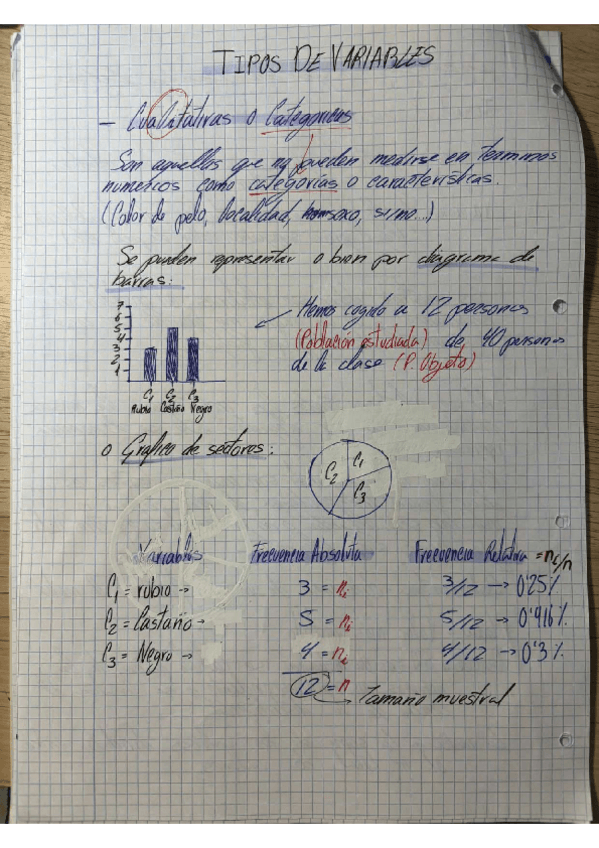 TIPOS DE VARIABLES
- Cualitativas o Categoricas
Son aquellas que no pueden medirse en terminos
numericos como categorías o características.
(Color de pelo, localidad, sexo, signo...)
Se pueden representar o bien por diagrama de
barras:
7
6
5
4
3
2
1
C1 C2 C3
Rubio Castaño Negro
Hemos cogido a 12 personas
(Población estudiada) de 40 personas
de la clase (P. Objeto)
o Grafico de sectores:
C1
C2
C3
Variables Frecuencia Absoluta Frecuencia Relativa = ni/n
C1 = rubio → 3 = ni 3/12 → 0'25%
C2 = Castaño → 5 = ni 5/12 → 0'416%
C3 = Negro → 4 = ni 4/12 → 0'3%
12 = n
Tamaño muestral